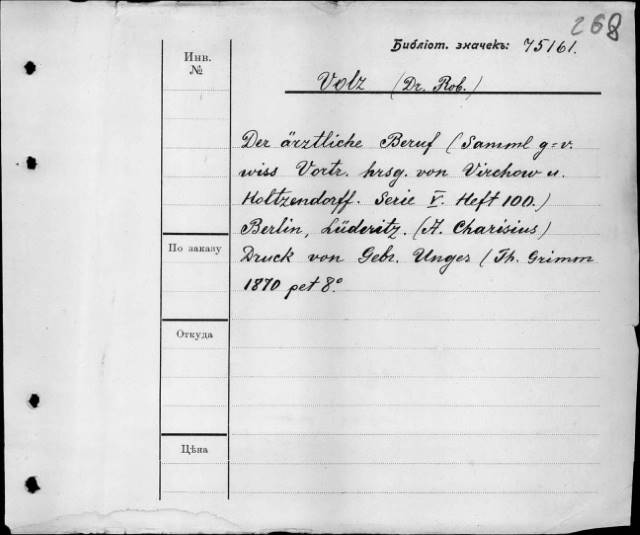 268
Библіот. значекъ: 75161.
Инв.
№
Volz (Dr. Rob.)
Der ärztliche Beruf (Samml g=v.
wiss Vortr. hrsg. von Virchow u.
Holtzendorff. Serie V. Heft 100.)
Berlin, Lüderitz. (A. Charisius)
По заказу
Druck von Gebr. Unger (Th. Grimm
1870 pet 8.°
Откуда
Цѣна